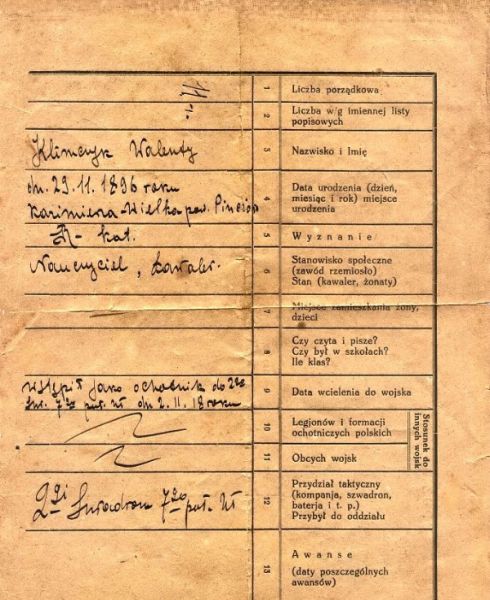 1 Liczba porządkowa
2 Liczba w/g imiennej listy
popisowych
Klimczyk Walenty
3 Nazwisko i Imię
dn. 29.11.1896 roku
Kazimierza-Wielka pow. Pinczów
4 Data urodzenia (dzień,
miesiąc i rok) miejsce
urodzenia
R-kat.
5 Wyznanie
Nauczyciel, kawaler.
6 Stanowisko społeczne
(zawód rzemiosło)
Stan (kawaler, żonaty)
7 Miejsce zamieszkania żony,
dzieci
8 Czy czyta i pisze?
Czy był w szkołach?
Ile klas?
wstąpił jako ochotnik do 2go
szw. 7go puł. Uł dn 2.11.18 roku
9 Data wcielenia do wojska
Stosunek do
innych wojsk
10 Legjonów i formacji
ochotniczych polskich
11 Obcych wojsk
2gi Szwadron 7go puł. Uł
12 Przydział taktyczny
(kompanja, szwadron,
baterja i t. p.)
Przybył do oddziału
13 Awanse
(daty poszczególnych
awansów)